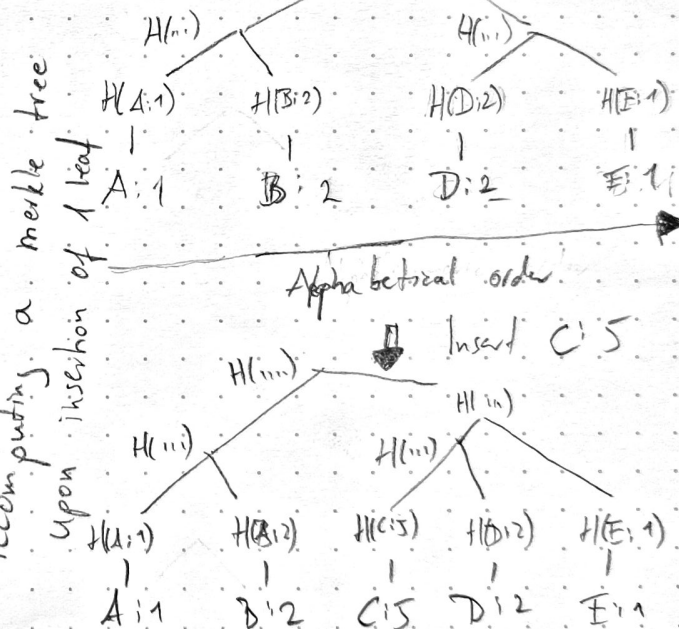 recomputing a merkle tree
upon insertion of 1 leaf
H(...) H(...)
H(A:1) H(B:2) H(D:2) H(E:1)
A:1 B:2 D:2 E:1
Alphabetical order
Insert C:5
H(...)
H(...)
H(...) H(...)
H(A:1) H(B:2) H(C:5) H(D:2) H(E:1)
A:1 B:2 C:5 D:2 E:1